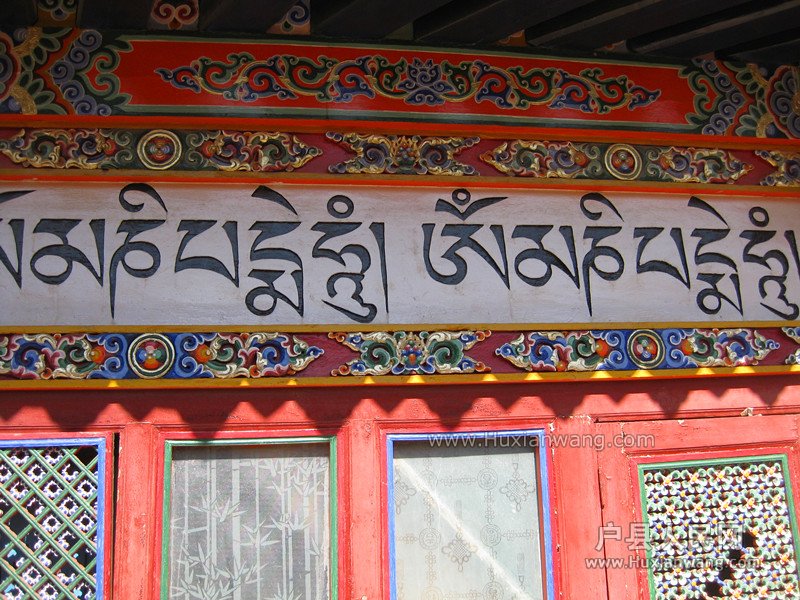 ༀམཎིཔདྨེཧཱུྃ། ༀམཎིཔདྨེཧཱུྃ།
www.Huxianwang.com
户县人民网
www.Huxianwang.com